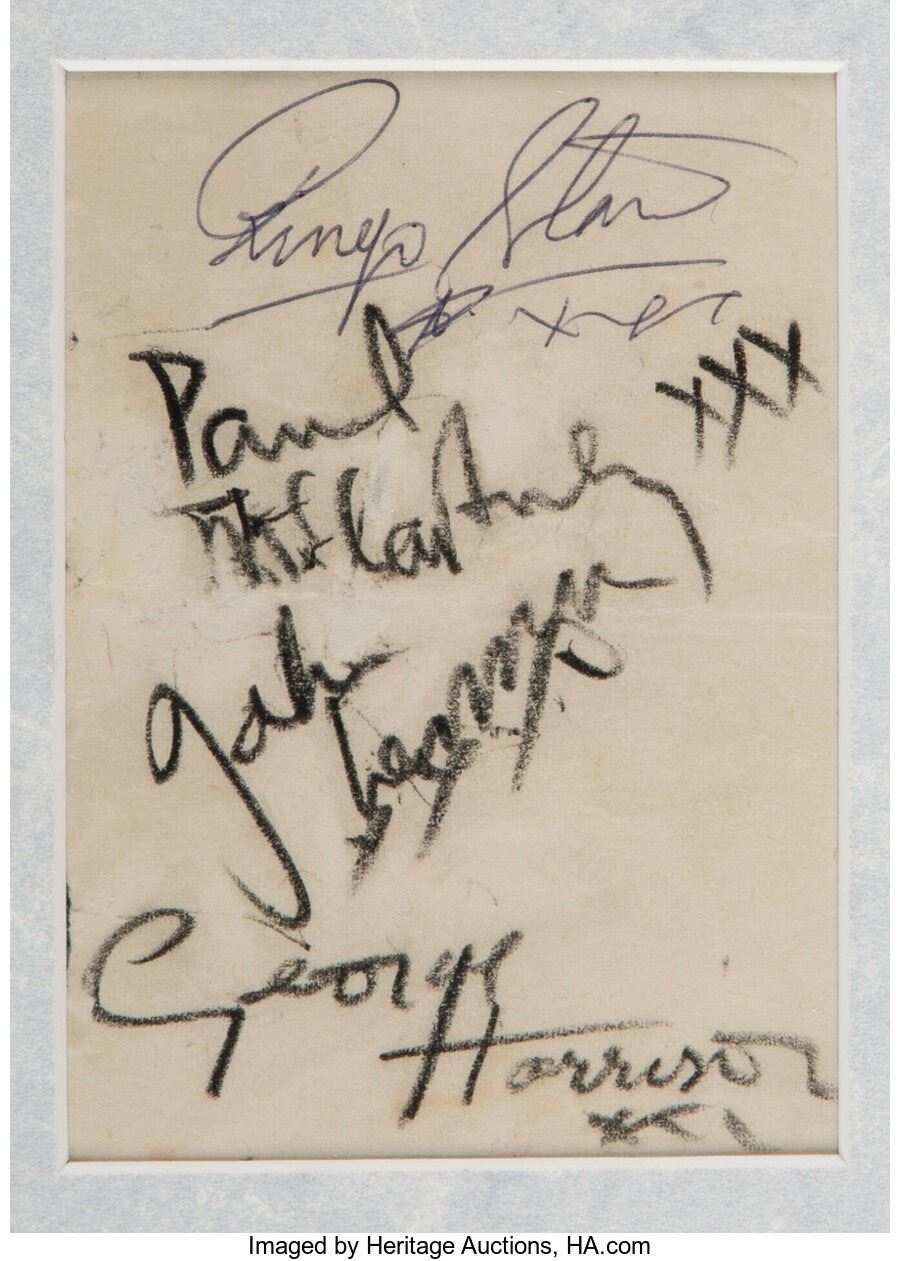 Ringo Starr
xxx
Paul
McCartney xxx
John
Lennon
George
Harrison
xxx
Imaged by Heritage Auctions, HA.com